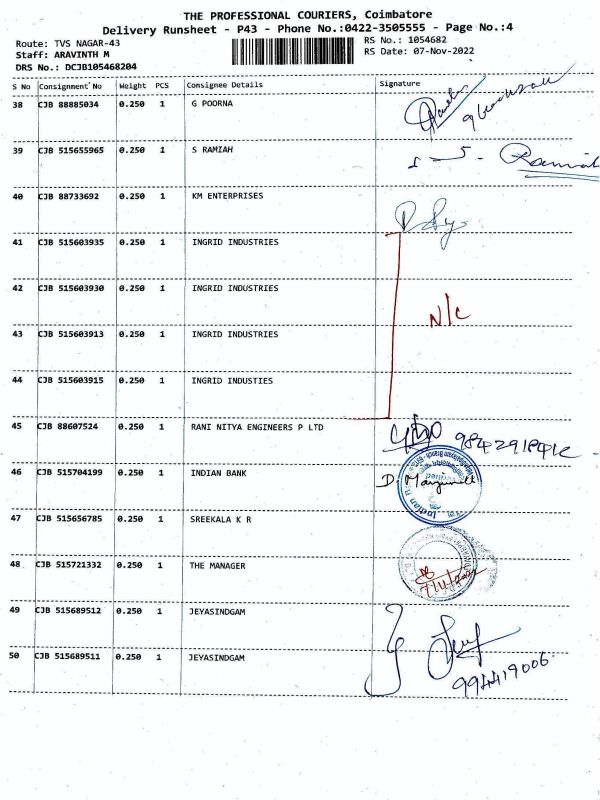 THE PROFESSIONAL COURIERS, Coimbatore
Delivery Runsheet - P43 - Phone No.:0422-3505555 - Page No.:4
Route: TVS NAGAR-43 RS No.: 1054682
Staff: ARAVINTH M RS Date: 07-Nov-2022
DRS No.: DCJB105468204
S No Consignment No Weight PCS Consignee Details Signature
38 CJB 88885034 0.250 1 G POORNA
39 CJB 515655965 0.250 1 S RAMIAH
S. Ramiah
40 CJB 88733692 0.250 1 KM ENTERPRISES
41 CJB 515603935 0.250 1 INGRID INDUSTRIES
42 CJB 515603930 0.250 1 INGRID INDUSTRIES
N/C
43 CJB 515603913 0.250 1 INGRID INDUSTRIES
44 CJB 515603915 0.250 1 INGRID INDUSTIES
45 CJB 88607524 0.250 1 RANI NITYA ENGINEERS P LTD
46 CJB 515704199 0.250 1 INDIAN BANK
Indian
47 CJB 515656785 0.250 1 SREEKALA K R
48 CJB 515721332 0.250 1 THE MANAGER
7/11/2022
49 CJB 515689512 0.250 1 JEYASINDGAM
50 CJB 515689511 0.250 1 JEYASINDGAM
994419006